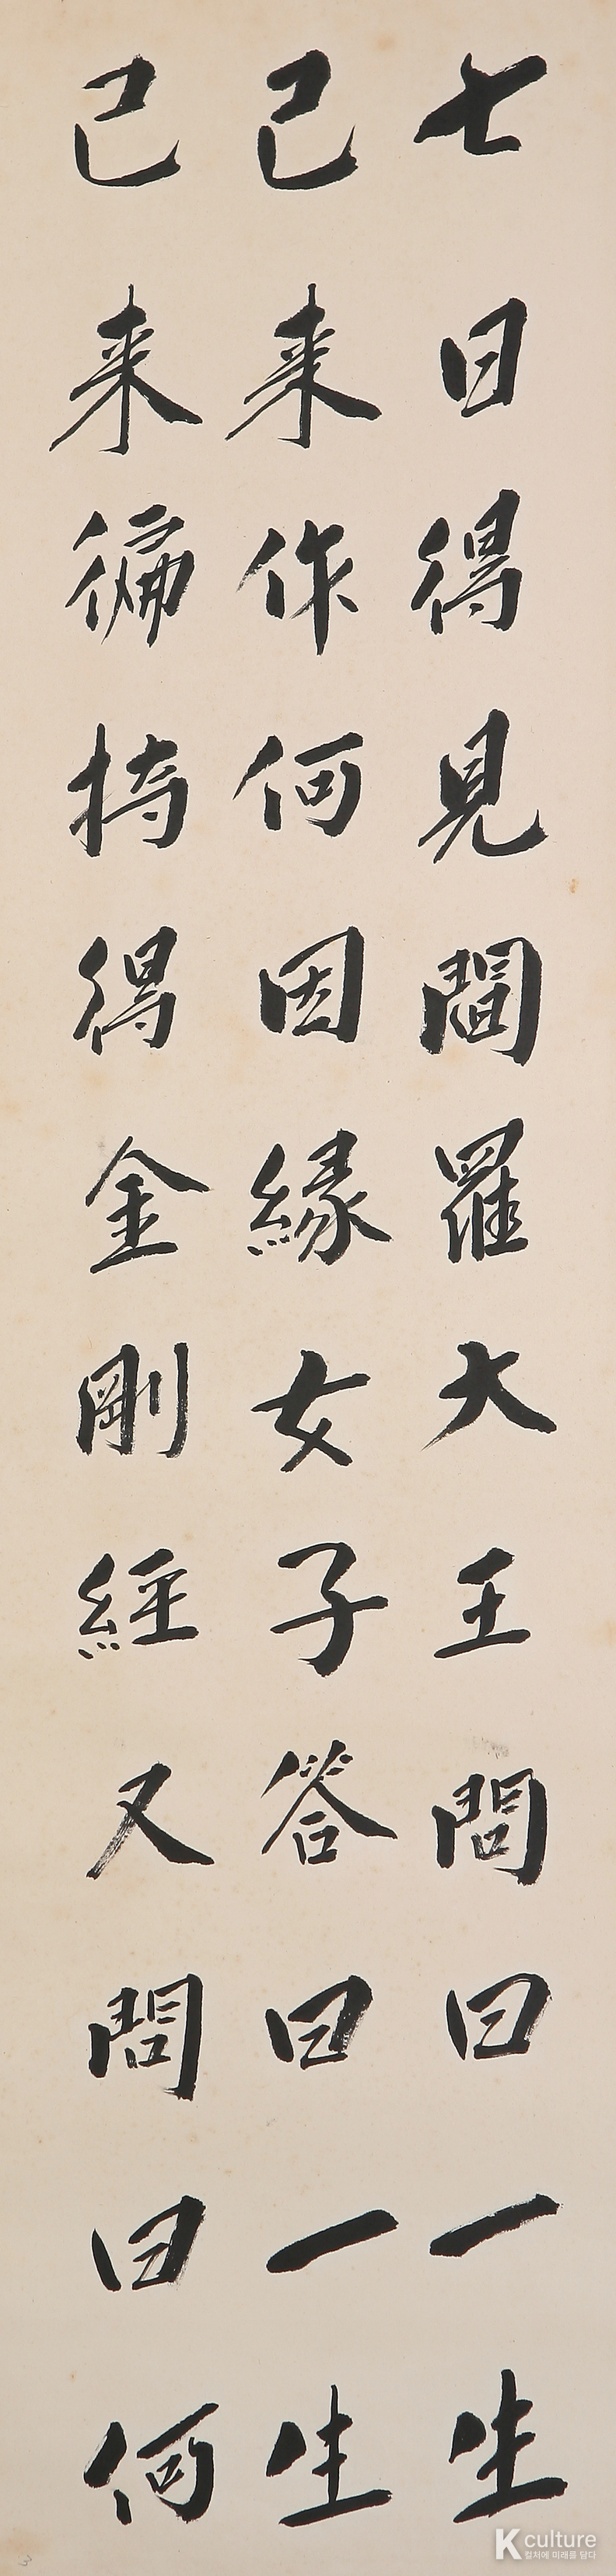 七日得見閻羅大王問曰一生
已来作何因緣女子答曰一生
已来徧持得金剛經又問曰何
K culture
컬처에 미래를 담다
3